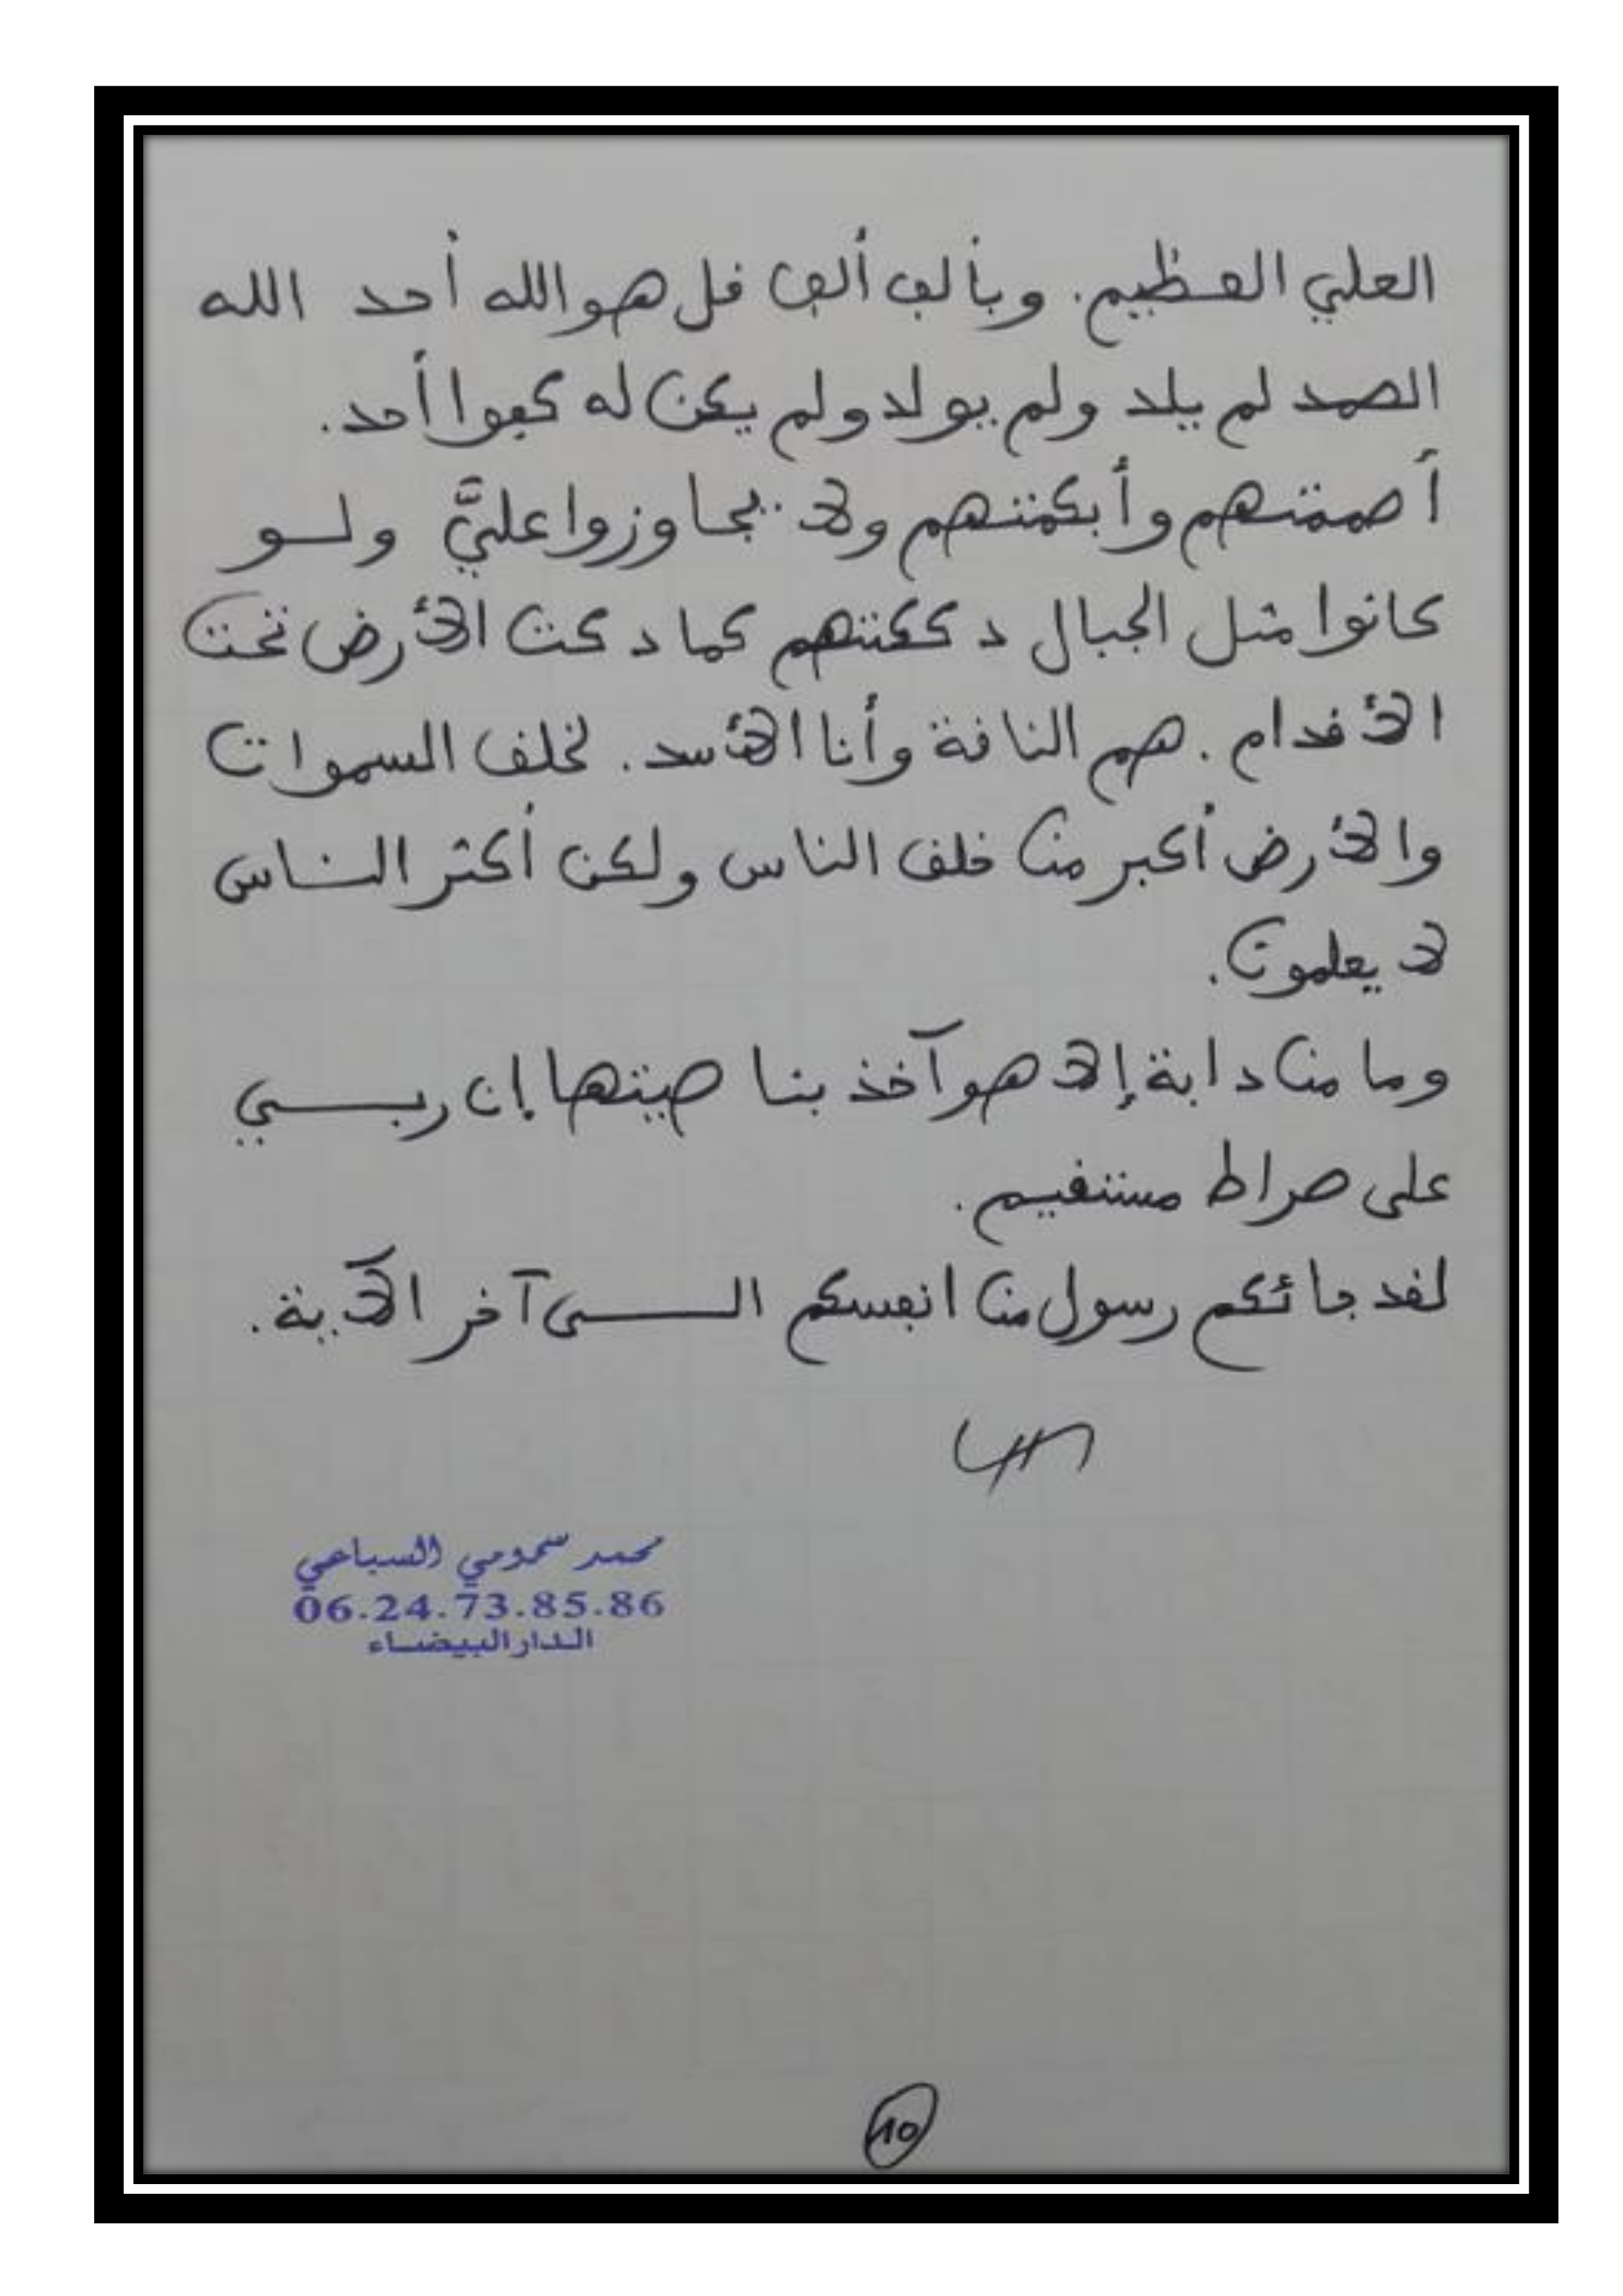 العلي العظيم. وبألف ألف قل هو الله أحد الله
الصمد لم يلد ولم يولد ولم يكن له كفوا أحد.
أصمتهم وأبكمتهم ولا يجاوزوا عليَّ ولو
كانوا مثل الجبال دككتهم كما دكت الأرض تحت
الأقدام. هم الناقة وأنا الأسد. لخلق السموات
والأرض أكبر من خلق الناس ولكن أكثر الناس
لا يعلمون.
وما من دابة إلا هو آخذ بناصيتها إن ربي
على صراط مستقيم.
لقد جائكم رسول من انفسكم الى آخر الآية.
محمد سموم‍ي السباعي
06.24.73.85.86
الدار البيضاء
10